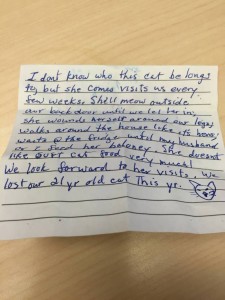 I dont know who this cat belongs
to, but she comes visits us every
few weeks. She'll meow outside
our back door until we let her in;
she wounds herself around our legs,
walks around the house like its hers,
waits @ the fridge until my husband
or I feed her baloney. She doesnt
like OUR cat food very much!
We look forward to her visits. We
lost our 21 yr old cat this yr.